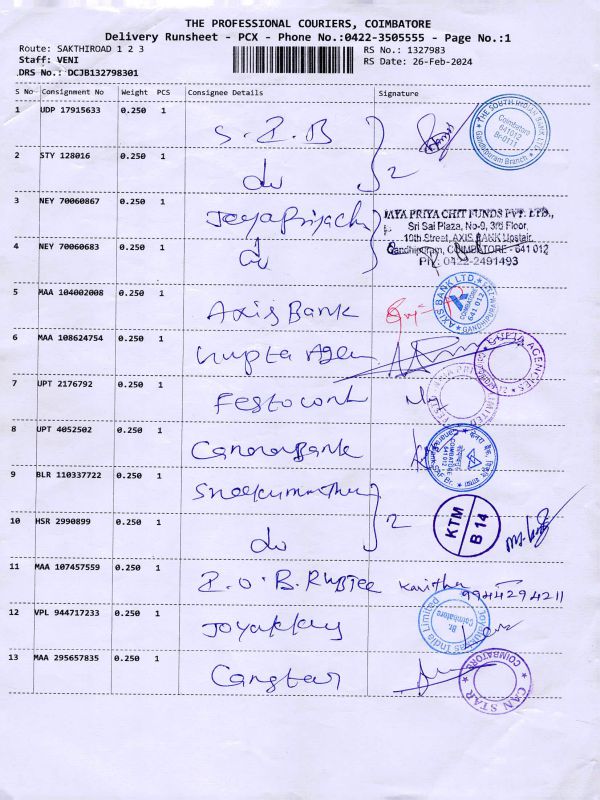 THE PROFESSIONAL COURIERS, COIMBATORE
Delivery Runsheet - PCX - Phone No.:0422-3505555 - Page No.:1
Route: SAKTHIROAD 1 2 3
RS No.: 1327983
Staff: VENI
RS Date: 26-Feb-2024
DRS No.: DCJB132798301
S No Consignment No Weight PCS Consignee Details Signature
1 UDP 17915633 0.250 1 S.I.B
THE SOUTH INDIAN BANK LTD
Coimbatore
641012
Br-0111
Gandhipuram Branch
2 STY 128016 0.250 1 do 2
3 NEY 70060867 0.250 1
JAYA PRIYA CHIT FUNDS PVT. LTD.,
Sri Sai Plaza, No-9, 3rd Floor,
10th Street, AXIS BANK Upstair,
Gandhipuram, COIMBATORE - 641 012
PH: 0422-2491493
4 NEY 70060683 0.250 1 do
5 MAA 104002008 0.250 1 Axis Bank
AXIS BANK LTD.
COIMBATORE
641 012
6 MAA 108624754 0.250 1 Gupta Agen
GUPTA AGENCIES
7 UPT 2176792 0.250 1
8 UPT 4052502 0.250 1 Canara Bank
COIMBATORE
641 012
9 BLR 110337722 0.250 1
KTM
B 14
10 HSR 2990899 0.250 1 do 2
11 MAA 107457559 0.250 1 Kavitha
9944294211
12 VPL 944717233 0.250 1
Joyalukkas India Limited
Br.
Coimbatore
13 MAA 295657835 0.250 1
CAN STAR
COIMBATORE